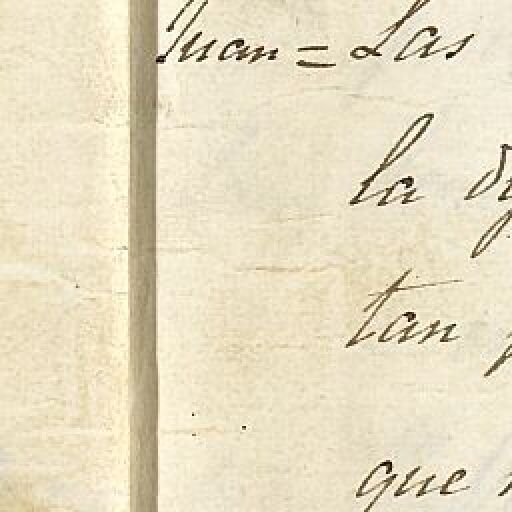 Juan = Las
la
tan
que